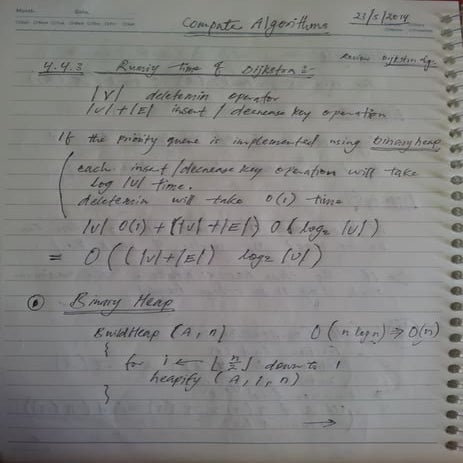 Compute Algorithms 23/5/2014
Review Dijkstra Alg.
4.4.3 Runnig time of Dijkstra :-
|V| deletemin operator
|V| + |E| insert / decrease key operation
If the priority queue is implemented using binary heap
each insert / decrease key operation will take
log |V| time.
deletemin will take O(1) time
|V| O(1) + (|V| + |E|) O ( log₂ |V|)
= O ( ( |V| + |E|) log₂ |V| )
Binary Heap
BuildHeap (A, n) O ( n log n) ⇒ O(n)
{
for i ← ⌊ n/2 ⌋ down to 1
heapify (A, i, n)
}
→